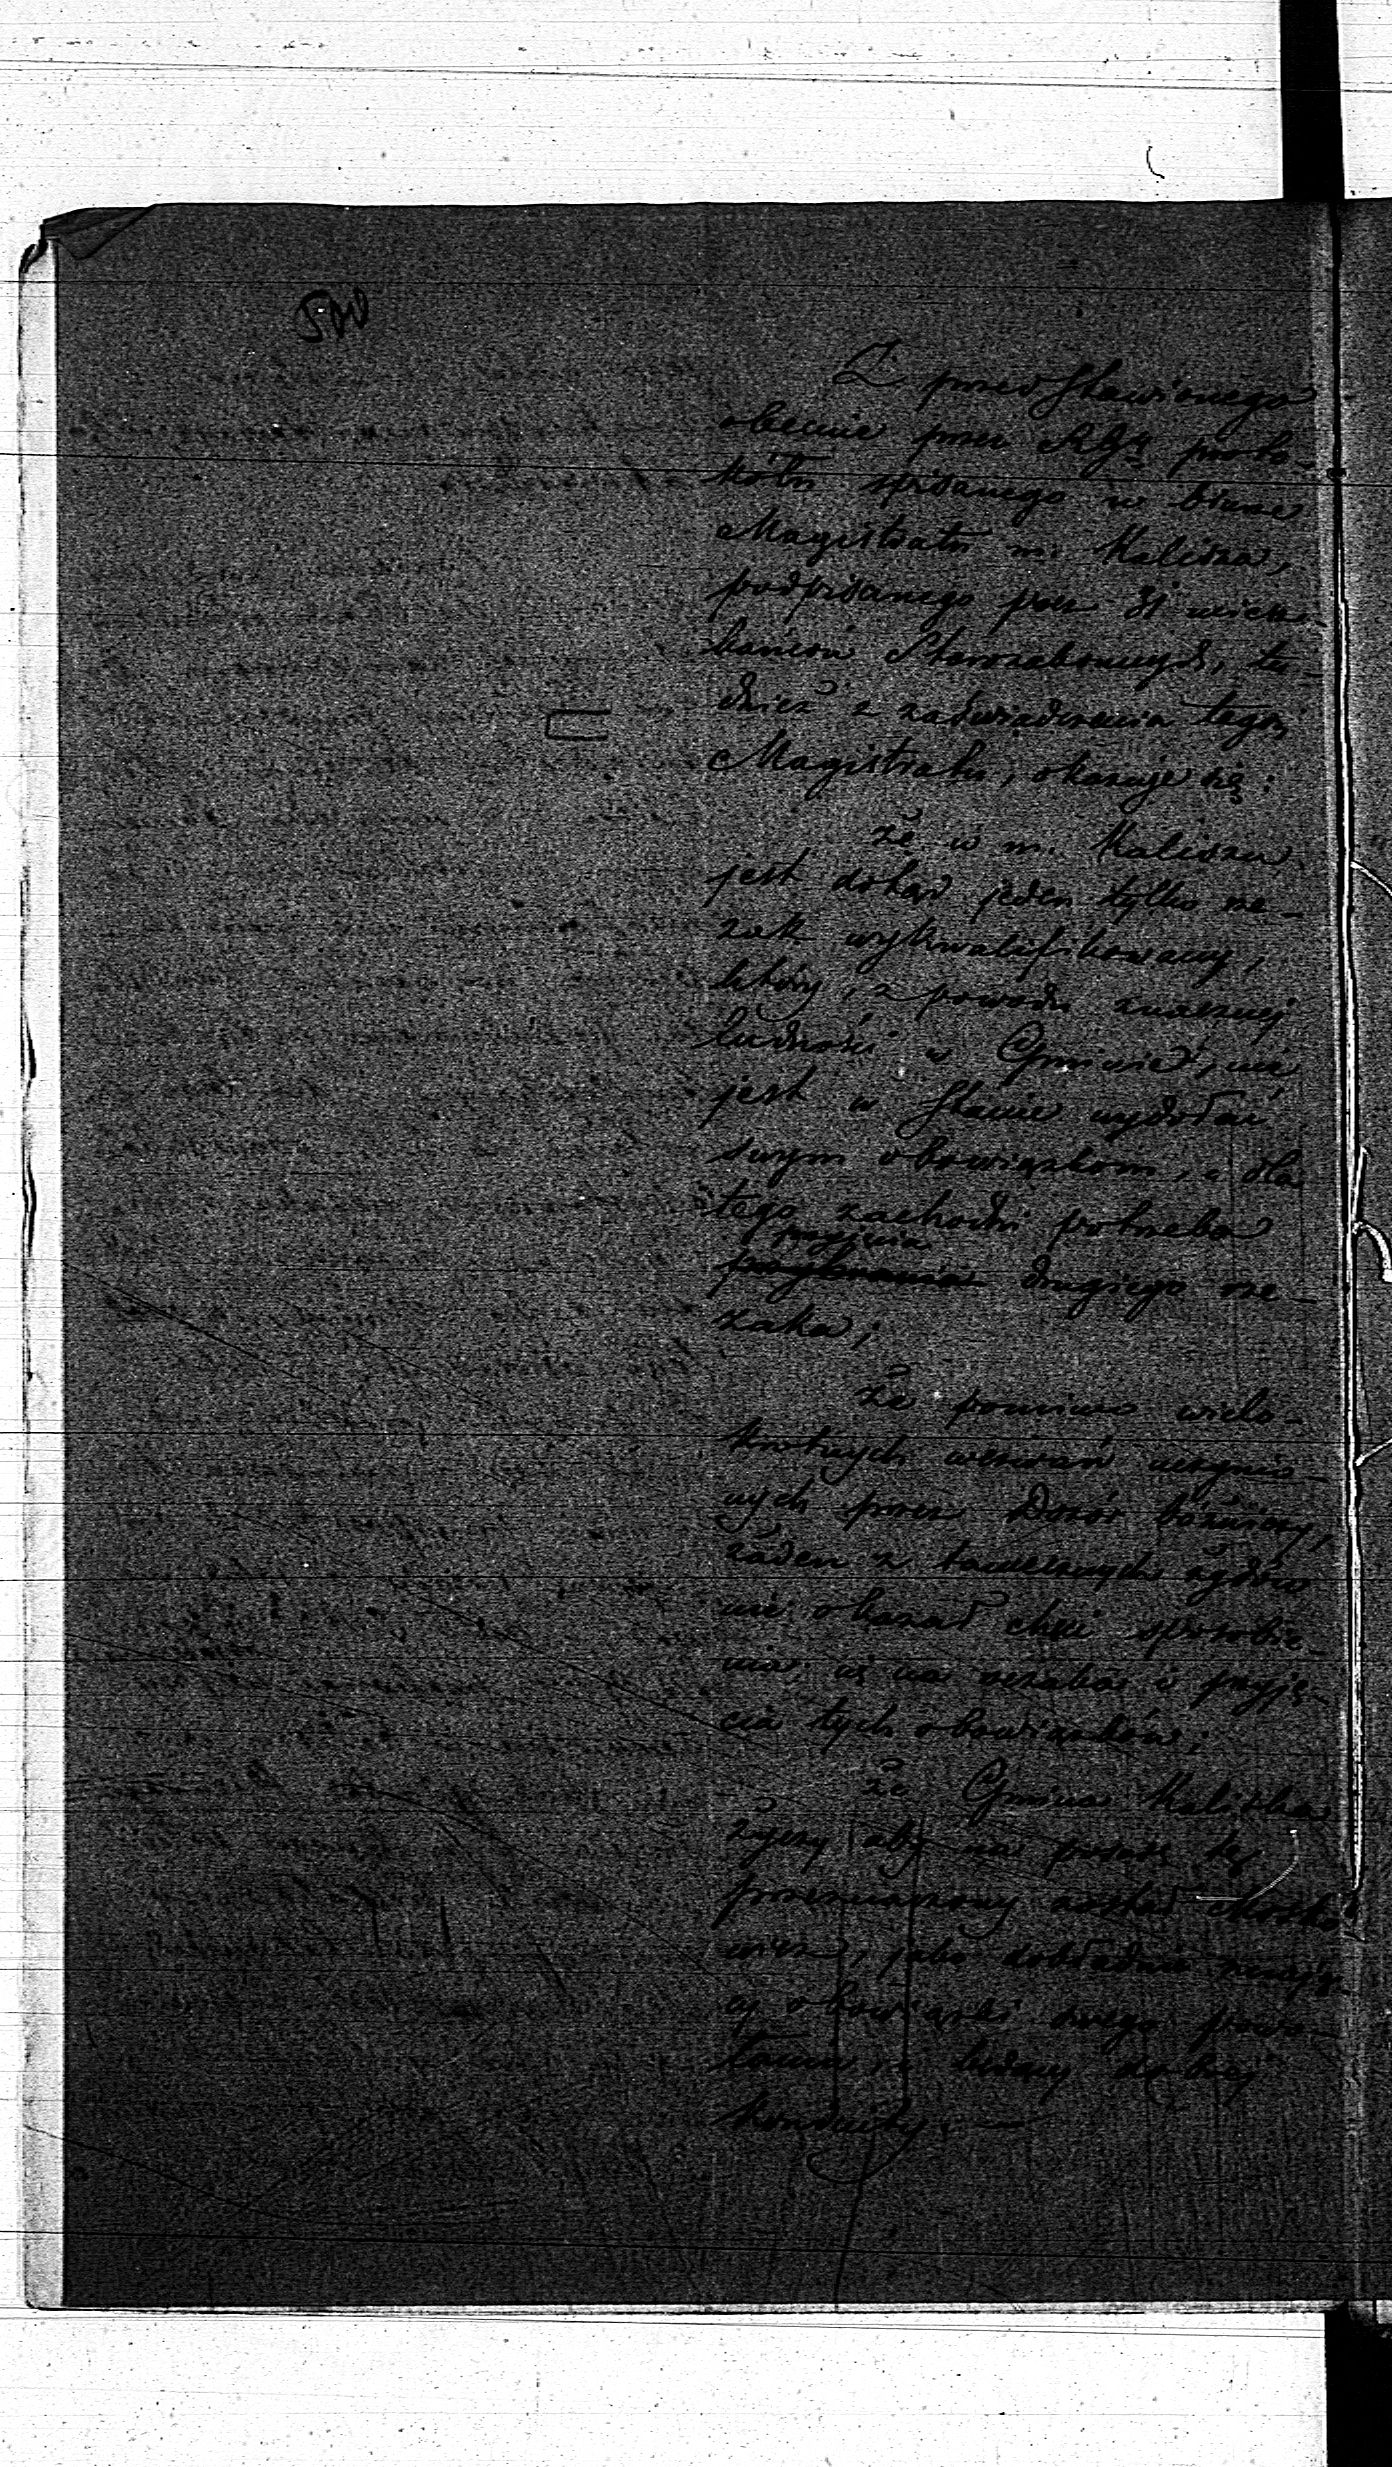 Z przedstawionego
obecnie przez RGu proto-
kółu spisanego w biurze
Magistratu m. Kalisza,
podpisanego przez 31 miesz-
kańców Starozakonnych, tu-
dzież z zaświadczenia tegoż
Magistratu, okazuje się:
że w m. Kaliszu
jest dotąd jeden tylko rze-
zak wykwalifikowany,
który, z powodu znacznej
ludności w Gminie, nie
jest w stanie wydołać
swym obowiązkom, a dla
tego zachodzi potrzeba
przyjęcia
drugiego rze-
zaka;
że pomimo wielo-
krotnych wezwań uczynio-
nych przez Dozór bóżniczy,
żaden z tamecznych żydów
nie okazał chęci sposobie-
nia się na rzezaka i przyję-
cia tych obowiązków;
że Gmina Kaliska
życzy aby na posadę tę
przeznaczony został Moszko-
wicz, jako dokładnie znają-
cy obowiązki swego powo-
łania, i ludzay dobrej
konduity. —